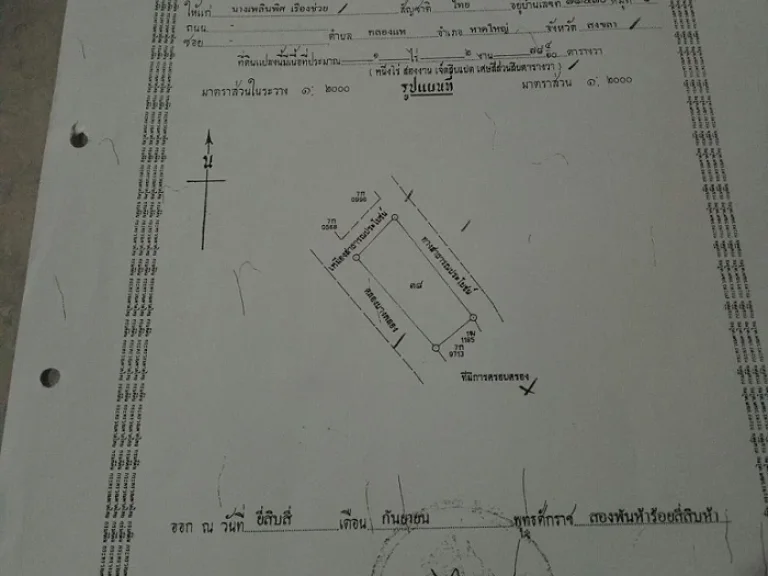 ให้แก่ นางเพลินพิศ เรืองช่วย สัญชาติ ไทย อยู่บ้านเลขที่
ถนน
ซอย ตำบล คลองแห อำเภอ หาดใหญ่ จังหวัด สงขลา
ที่ดินแปลงนี้มีเนื้อที่ประมาณ ๑ ไร่ ๒ งาน ๗๘ ๔/๑๐ ตารางวา
( หนึ่งไร่ สองงาน เจ็ดสิบแปด เศษสี่ส่วนสิบตารางวา )
มาตราส่วนในระวาง ๑: ๒๐๐๐ รูปแผนที่ มาตราส่วน ๑: ๒๐๐๐
น
7ก
0996
7ก
0588
เหมืองสาธารณประโยชน์
ทางสาธารณประโยชน์
๓๘
คลองบางกลอง
1ฆ
1185
7ก
9713
ที่มีการครอบครอง
ออก ณ วันที่ ยี่สิบสี่ เดือน กันยายน พุทธศักราช สองพันห้าร้อยสี่สิบห้า